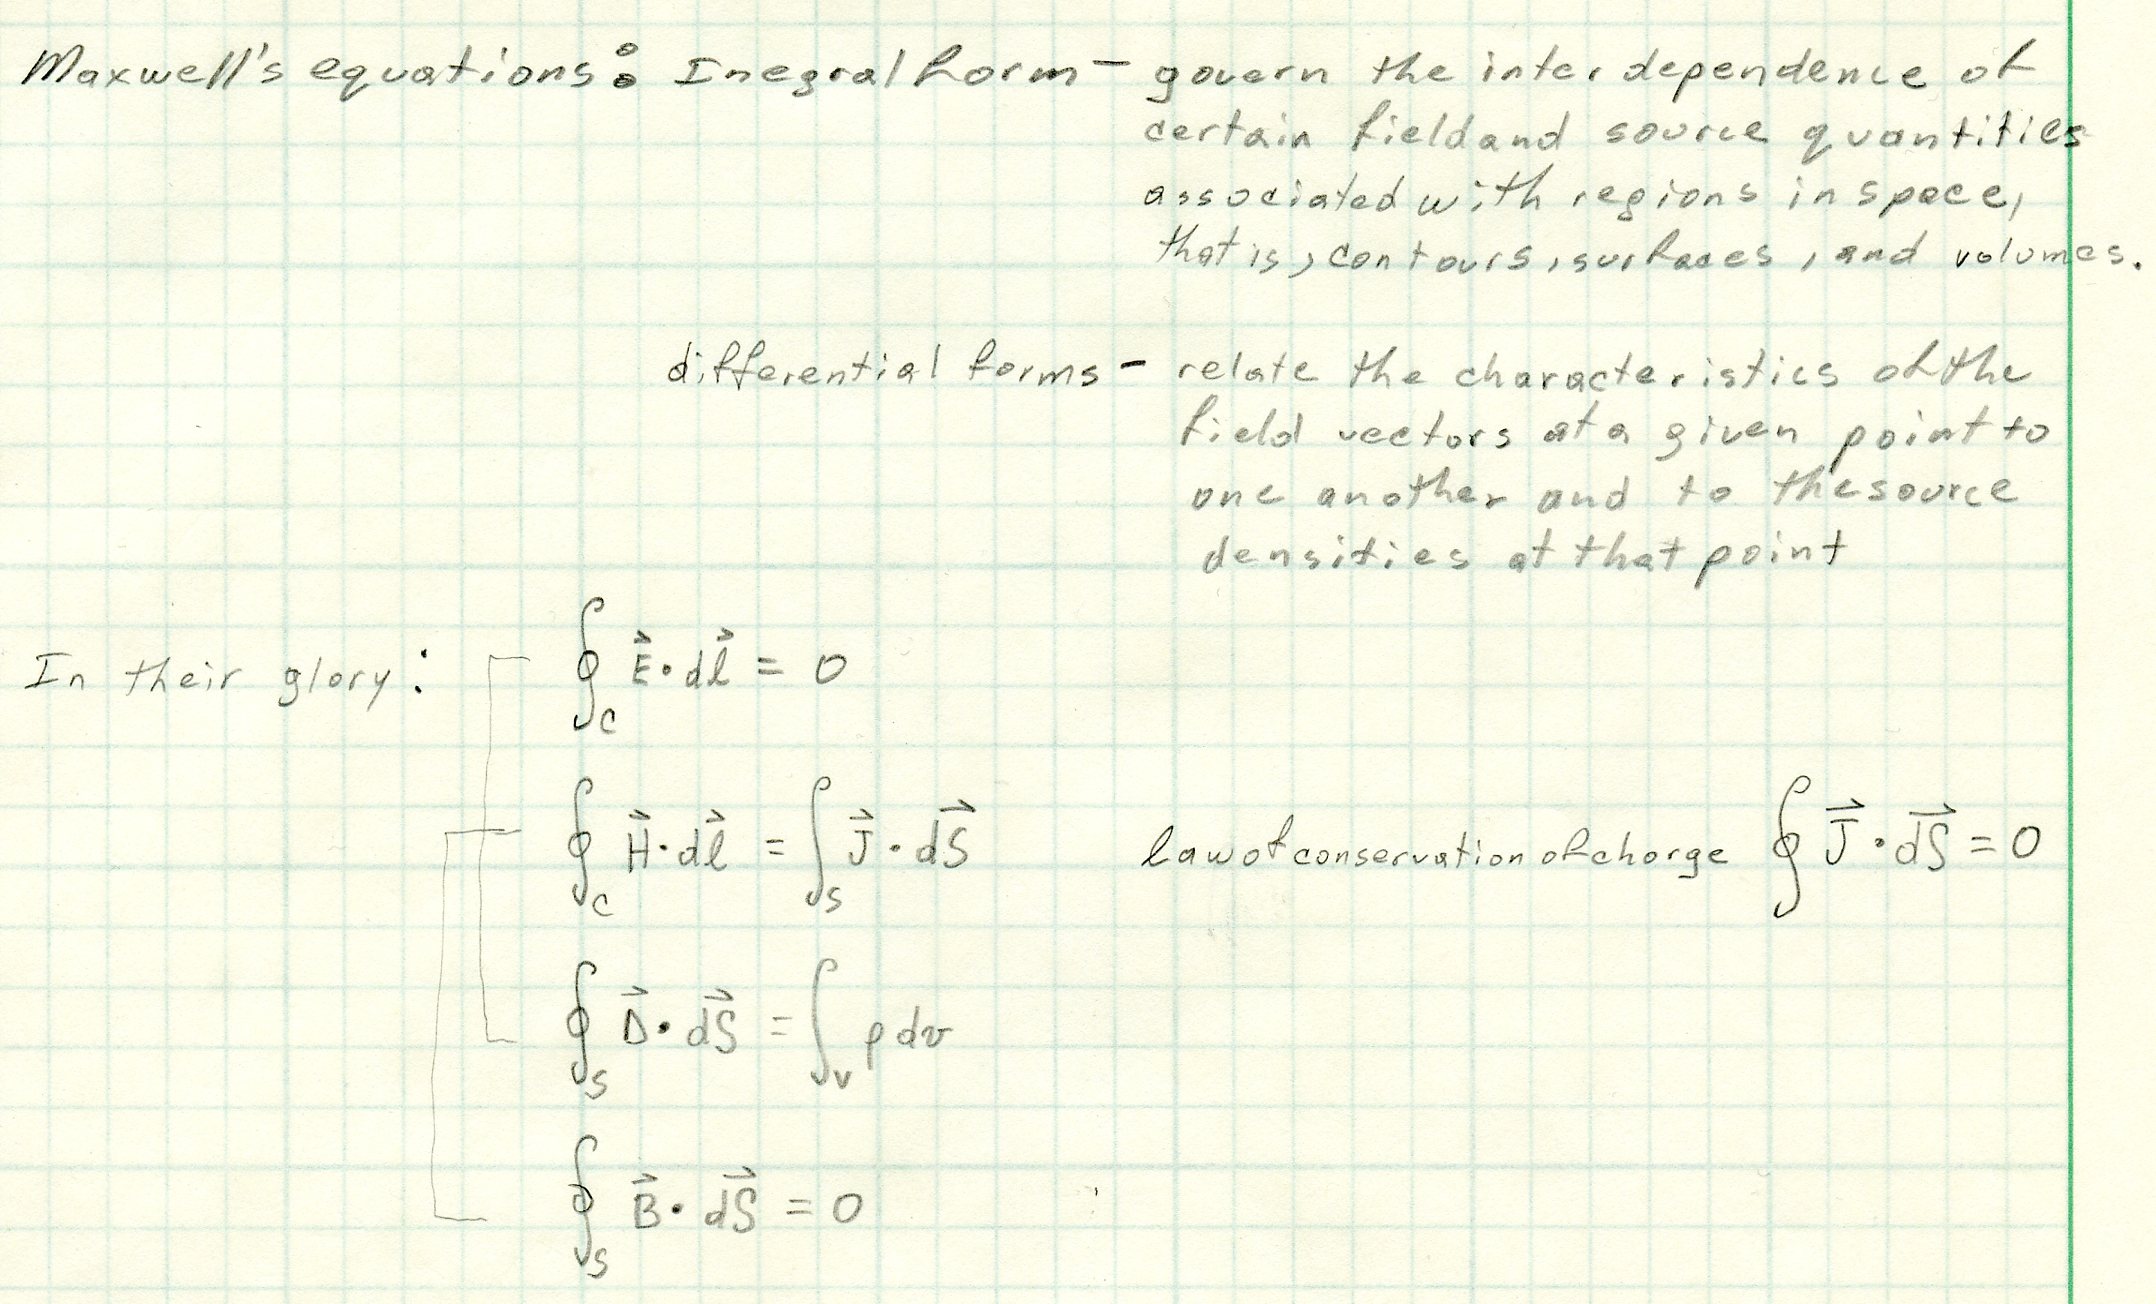 Maxwell's equations: Inegral form – govern the interdependence of
certain field and source quantities
associated with regions in space,
that is, contours, surfaces, and volumes.
differential forms – relate the characteristics of the
field vectors at a given point to
one another and to the source
densities at that point
In their glory: ∮_C E⃗ · dl⃗ = 0
∮_C H⃗ · dl⃗ = ∫_S J⃗ · dS⃗ law of conservation of charge ∮ J⃗ · dS⃗ = 0
∮_S D⃗ · dS⃗ = ∫_V ρ dv
∮_S B⃗ · dS⃗ = 0